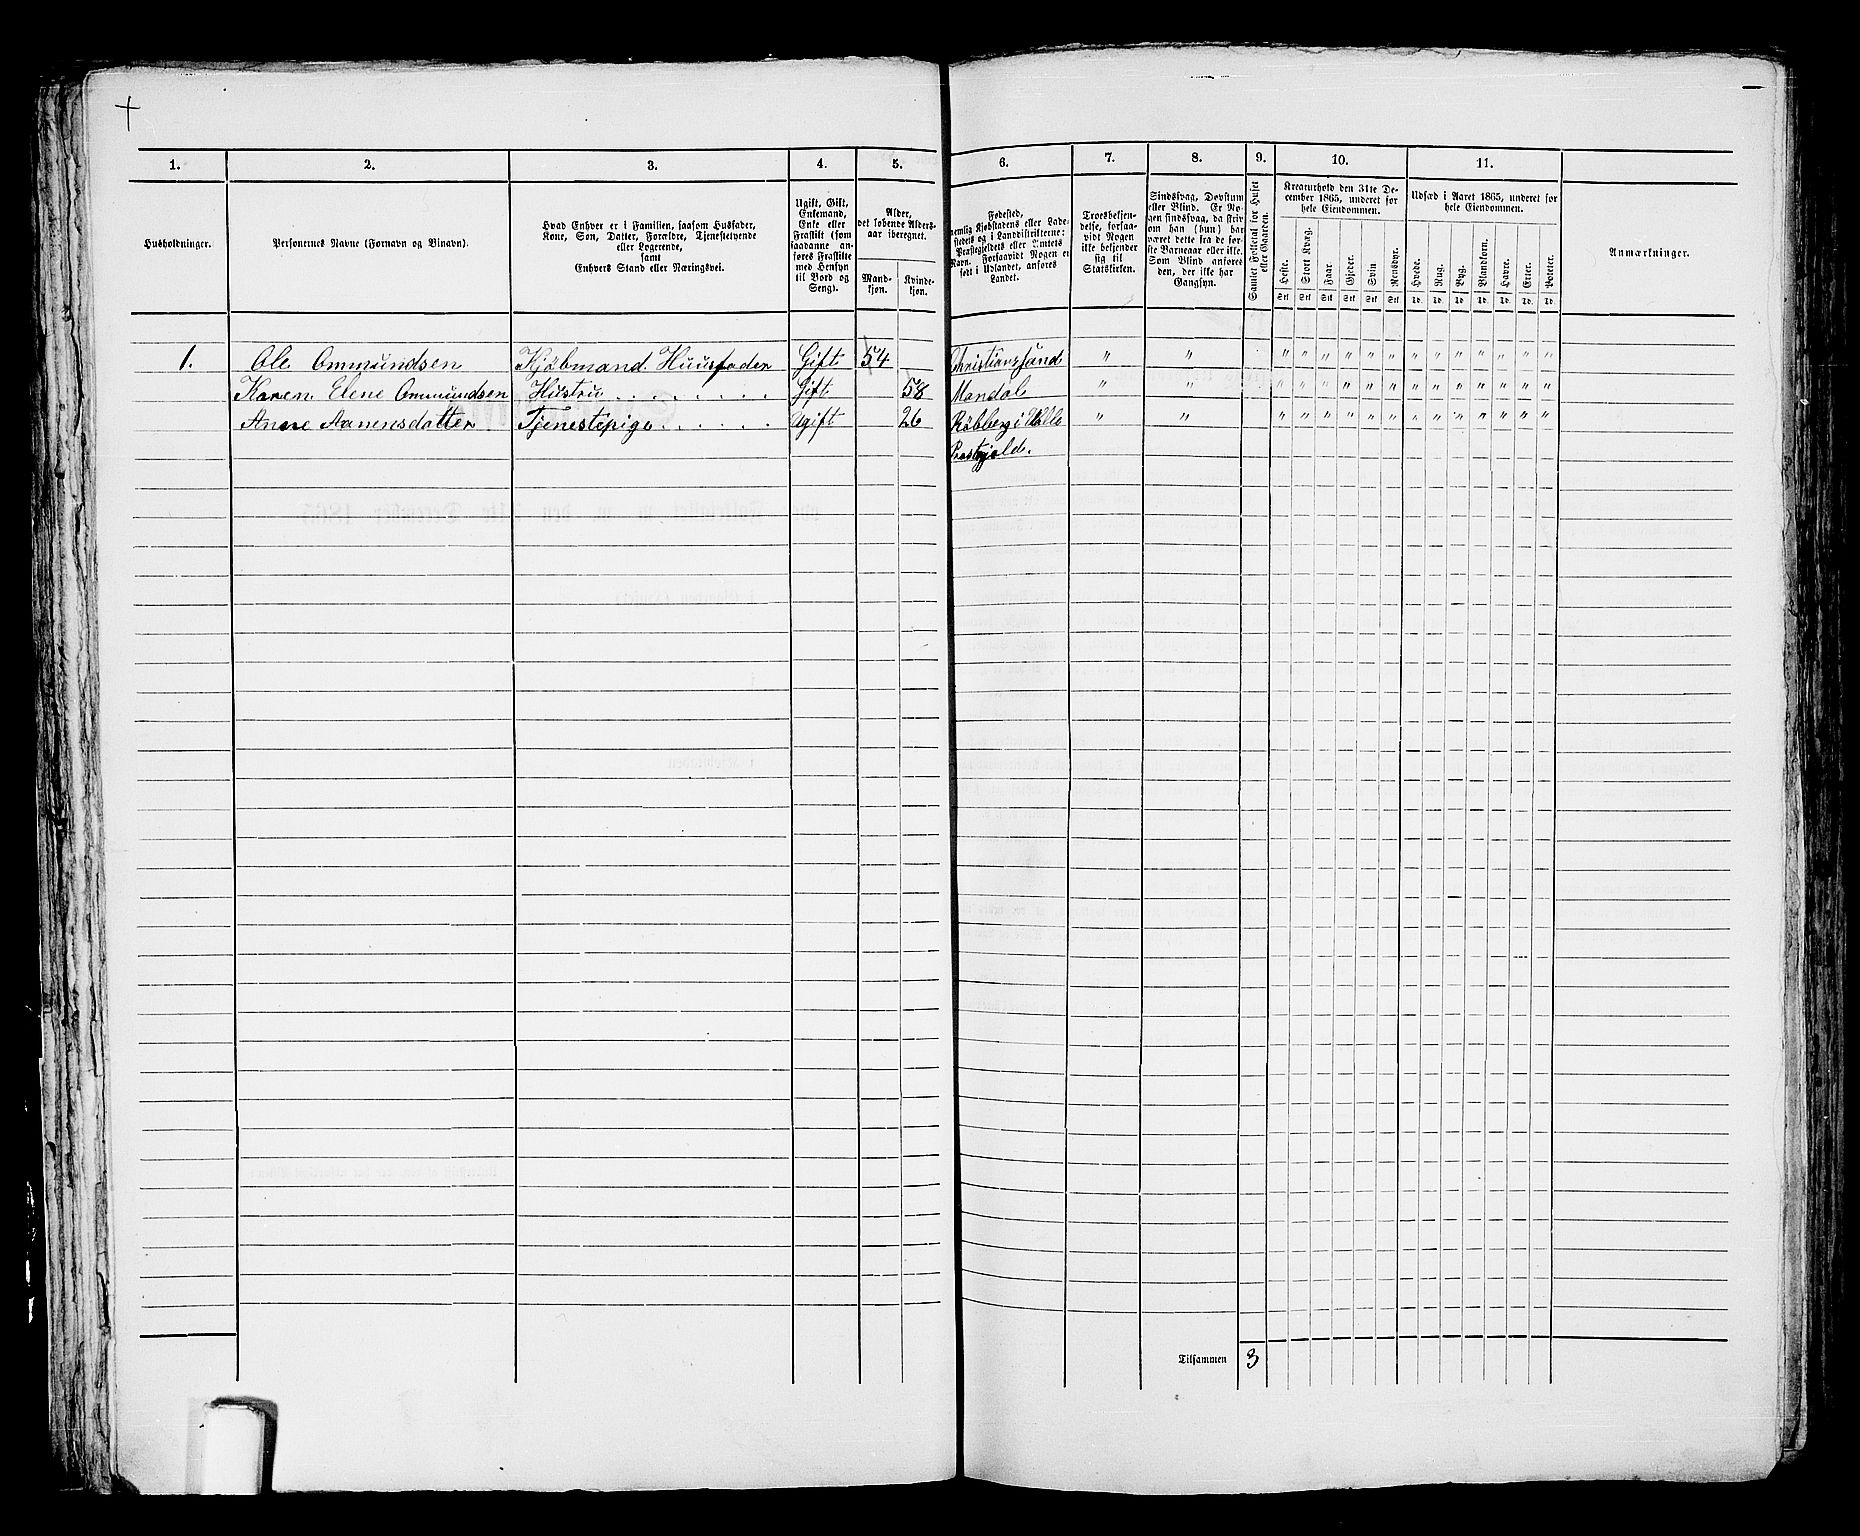 1. 2. 3. 4. 5. 6. 7. 8. 9. 10. 11.
Husholdninger.
Personernes Navne (Fornavn og Binavn).
Hvad Enhver er i Familien, saasom Husfader,
Kone, Søn, Datter, Forældre, Tjenestetyende
eller Logerende,
samt
Enhvers Stand eller Næringsvei.
Ugift, Gift,
Enkemand,
Enke eller
Fraskilt (som
saadanne an-
føres Fraskilte
med Hensyn
til Bord og
Seng).
Alder,
det løbende Alders-
aar iberegnet.
Mand-
kjøn.
Kvinde-
kjøn.
Fødested,
nemlig Kjøbstadens eller Lade-
stedets og i Landdistrikterne:
Præstegjeldets eller Sognets
Navn. Forsaavidt Nogen er
født i Udlandet, anføres
Landet.
Troesbekjen-
delse, forsaa-
vidt Nogen
ikke bekjender
sig til
Statskirken.
Sindssvag, Døvstum
eller Blind. Er No-
gen sindssvag, da skriv
om han (hun) har
været dette fra de før-
ste Barneaar eller ikke.
Som Blind anføres
den, der ikke har
Gangsyn.
Samlet Folketal for Huset
eller Gaarden.
Kreaturhold den 31te De-
cember 1865, underet for
hele Eiendommen.
Heste. Stort Kvæg. Faar. Gjeder. Svin Rensdyr.
Stk Stk Stk Stk Stk Stk
Udsæd i Aaret 1865, underet for
hele Eiendommen.
Hvede. Rug. Byg. Blandkorn. Havre. Erter. Poteter.
Td. Td. Td. Td. Td. Td. Td.
Anmærkninger.
1. Ole Ommundsen Kjøbmand. Huusfader Gift 54 Christianssand " " " " " " " " " " " " " " "
Karen Elene Ommundsen Hustru . . . . . . . Gift 58 Mandal " " " " " " " " " " " " " " "
Anne Aanensdatter Tjenestepige . . . . . Ugift 26 " " " " " " " " " " " " " " "
Tilsammen 3